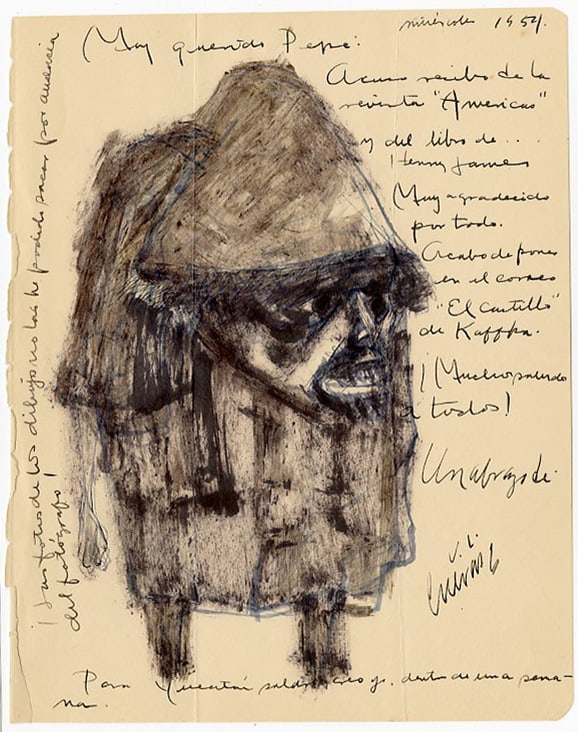 miércoles 1954.
Muy querido Pepe:
Acuso recibo de la
revista "Americas"
y del libro de...
Henry James
Muy agradecido
por todo.
Acabo de poner
en el correo
"El castillo"
de Kaffka.
¡Muchos saludos
a todos!
Un abrazo de
Cuevas
¡Las fotos de los dibujos no las he podido sacar por ausencia
del fotógrafo!
Para Yucatán saldré creo yo, dentro de una sema-
na.